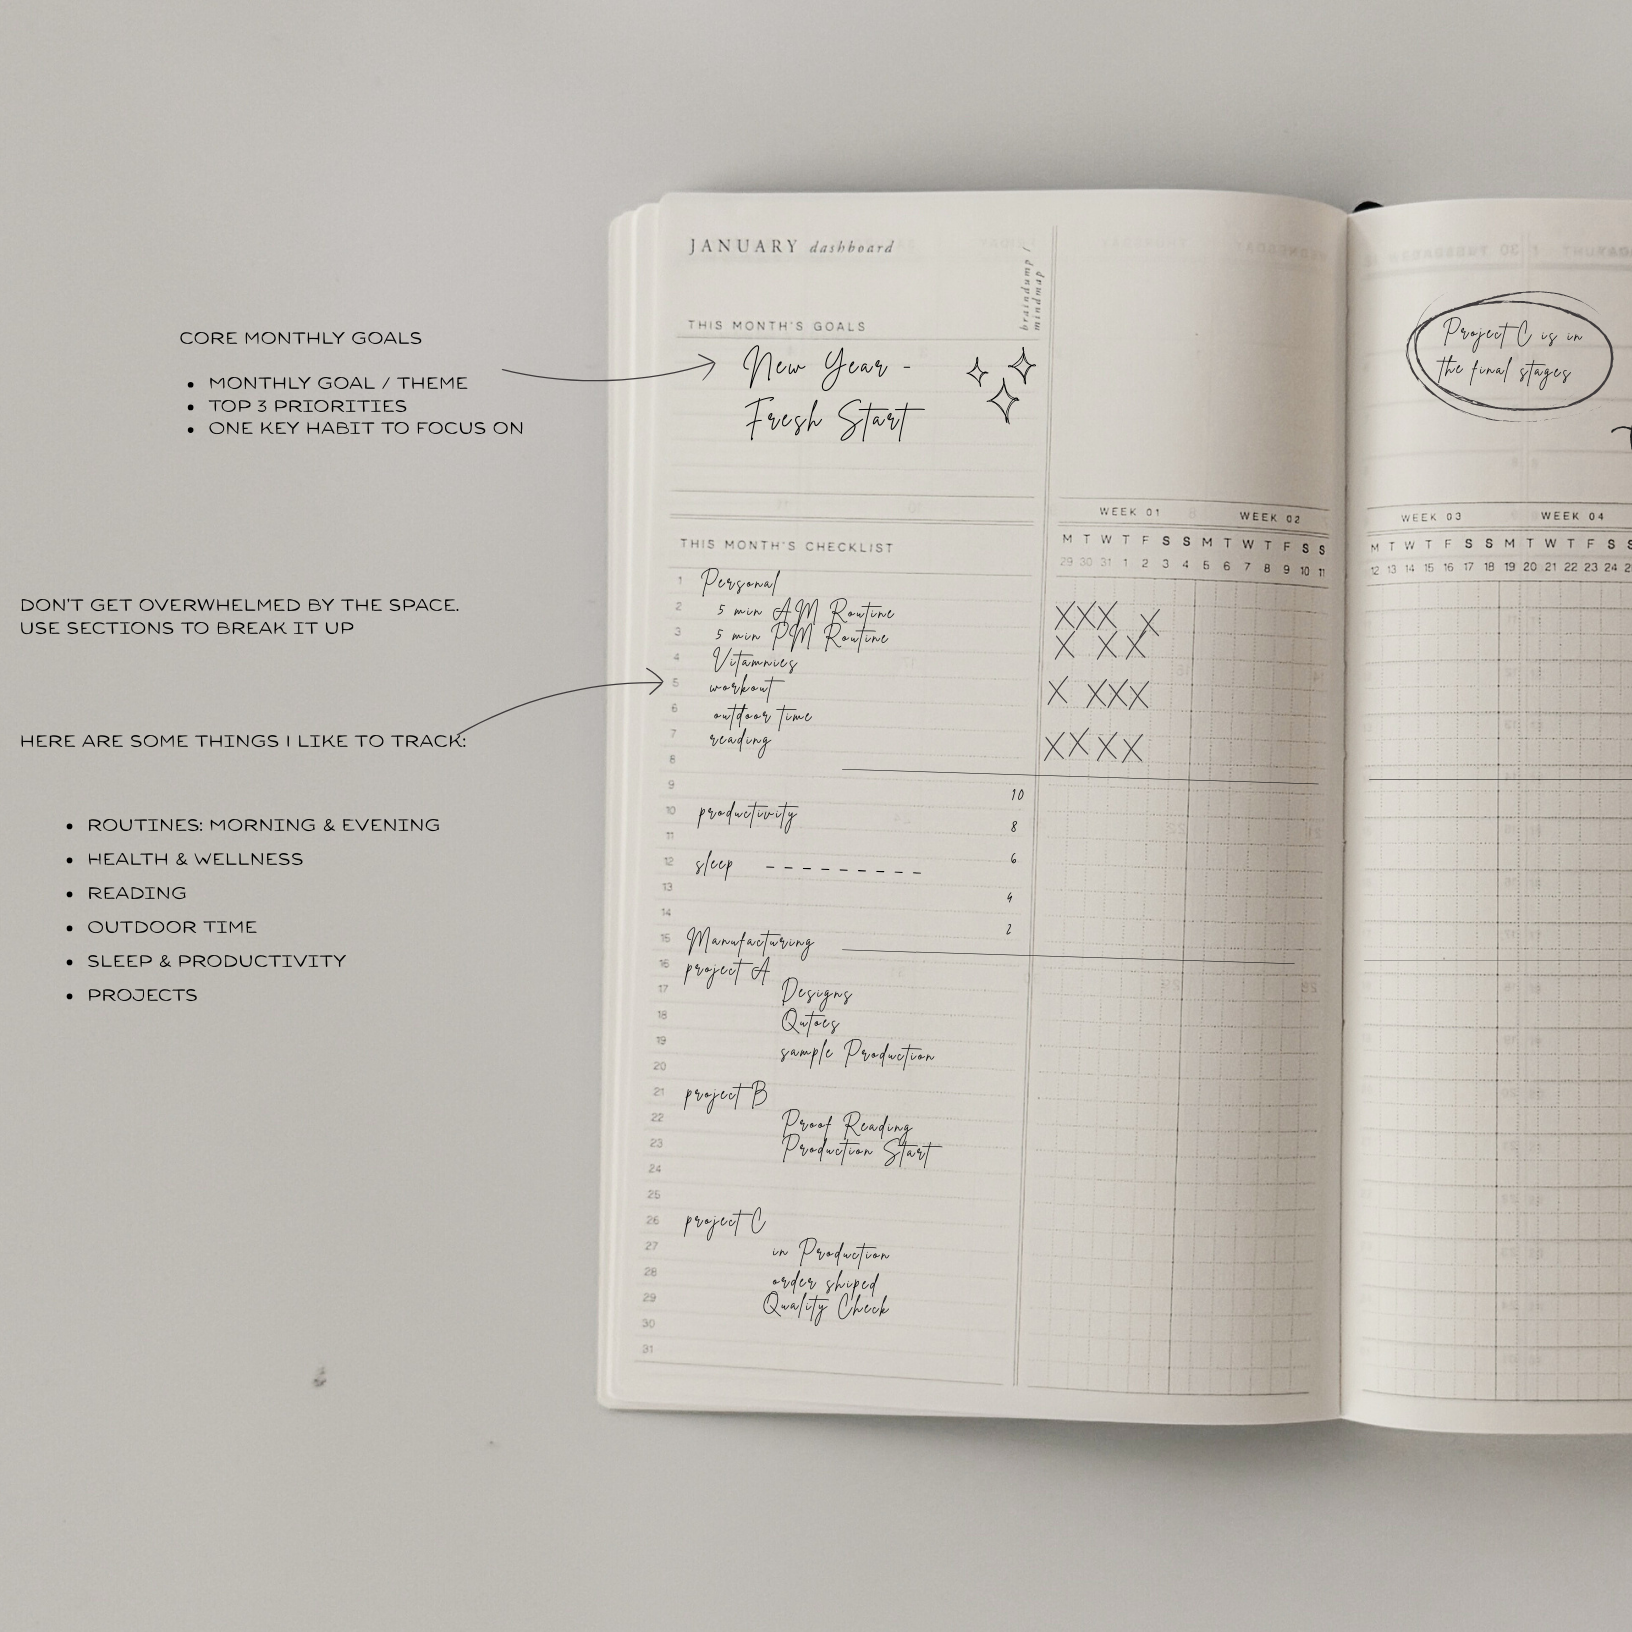 CORE MONTHLY GOALS
• MONTHLY GOAL / THEME
• TOP 3 PRIORITIES
• ONE KEY HABIT TO FOCUS ON
DON'T GET OVERWHELMED BY THE SPACE.
USE SECTIONS TO BREAK IT UP
HERE ARE SOME THINGS I LIKE TO TRACK:
• ROUTINES: MORNING & EVENING
• HEALTH & WELLNESS
• READING
• OUTDOOR TIME
• SLEEP & PRODUCTIVITY
• PROJECTS
JANUARY dashboard
braindump /
mindmap
THIS MONTH'S GOALS
New Year -
Fresh Start
THIS MONTH'S CHECKLIST
1 Personal
2 5 min AM Routine
3 5 min PM Routine
4 Vitamnies
5 workout
6 outdoor time
7 reading
8
9
10 productivity
11
12 sleep - - - - - - - - -
13
14
15 Manufacturing
16 project A
17 Designs
18 Qutoes
19 sample Production
20
21 project B
22 Proof Reading
23 Production Start
24
25
26 project C
27 in Production
28 order shiped
29 Quality Check
30
31
10
8
6
4
2
WEEK 01 WEEK 02
M T W T F S S M T W T F S S
29 30 31 1 2 3 4 5 6 7 8 9 10 11
X X X X
X X X
X X X X
X X X X
Project C is in
the final stages
WEEK 03 WEEK 04
M T W T F S S M T W T F S S
12 13 14 15 16 17 18 19 20 21 22 23 24